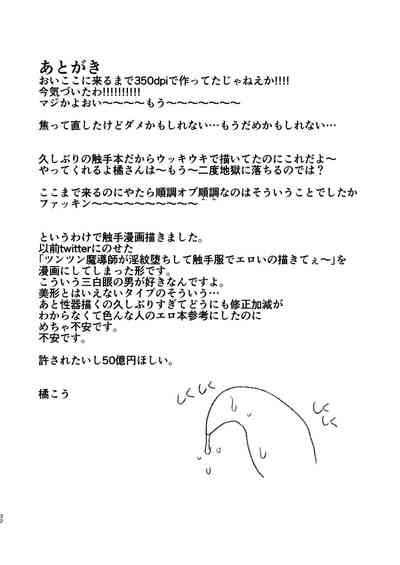 あとがき
おいここに来るまで350dpiで作ってたじゃねえか!!!!
今気づいたわ!!!!!!!!!!
マジかよおい〜〜〜〜もう〜〜〜〜〜〜〜
焦って直したけどダメかもしれない…もうだめかもしれない…
久しぶりの触手本だからウッキウキで描いてたのにこれだよ〜
やってくれるよ橘さんは〜もう〜二度地獄に落ちるのでは？
ここまで来るのにやたら順調オブ順調なのはそういうことでしたか
ファッキン〜〜〜〜〜〜〜〜〜〜
というわけで触手漫画描きました。
以前twitterにのせた
「ツンツン魔導師が淫紋堕ちして触手服でエロいの描きてぇ〜」を
漫画にしてしまった形です。
こういう三白眼の男が好きなんですよ。
美形とはいえないタイプのそういう…
あと性器描くの久しぶりすぎてどうにも修正加減が
わからなくて色んな人のエロ本参考にしたのに
めちゃ不安です。
不安です。
許されたいし50億円ほしい。
橘こう
しくしく
しくしく